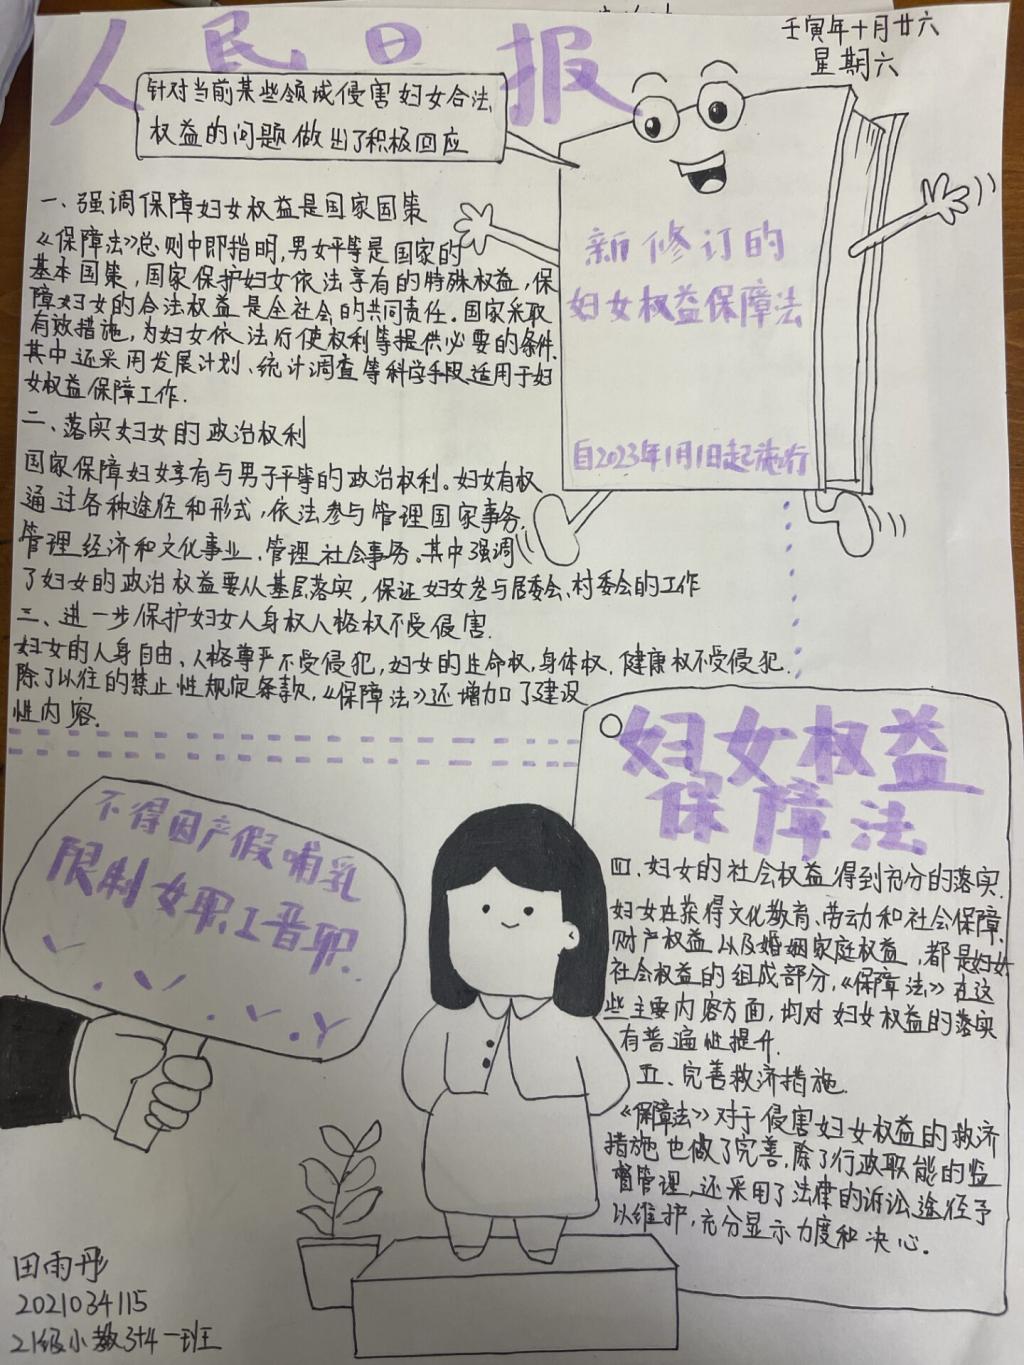 人民日报
壬寅年十月廿六
星期六
针对当前某些领域侵害妇女合法
权益的问题做出了积极回应
新修订的
妇女权益保障法
自2023年1月1日起施行
一、强调保障妇女权益是国家国策
《保障法》总则中即指明,男女平等是国家的
基本国策,国家保护妇女依法享有的特殊权益,保
障妇女的合法权益是全社会的共同责任。国家采取
有效措施,为妇女依法行使权利等提供必要的条件.
其中还采用发展计划、统计调查等科学手段适用于妇
女权益保障工作.
二、落实妇女的政治权利
国家保障妇女享有与男子平等的政治权利。妇女有权
通过各种途径和形式,依法参与管理国家事务.
管理经济和文化事业、管理社会事务。其中强调
了妇女的政治权益要从基层落实,保证妇女参与居委会、村委会的工作
三、进一步保护妇女人身权人格权不受侵害.
妇女的人身自由、人格尊严不受侵犯,妇女的生命权,身体权.健康权不受侵犯.
除了以往的禁止性规定条款,《保障法》还增加了建设
性内容.
不得因产假哺乳
限制女职工晋职.
妇女权益
保障法
四、妇女的社会权益得到充分的落实.
妇女在获得文化教育、劳动和社会保障、
财产权益以及婚姻家庭权益,都是妇女
社会权益的组成部分,《保障法》在这
些主要内容方面,均对妇女权益的落实
有普遍性提升.
五、完善救济措施.
《保障法》对于侵害妇女权益的救济
措施也做了完善,除了行政职能的监
督管理、还采用了法律的诉讼途径予
以维护,充分显示力度和决心.
田雨彤
2021034115
21级小教3+4一班